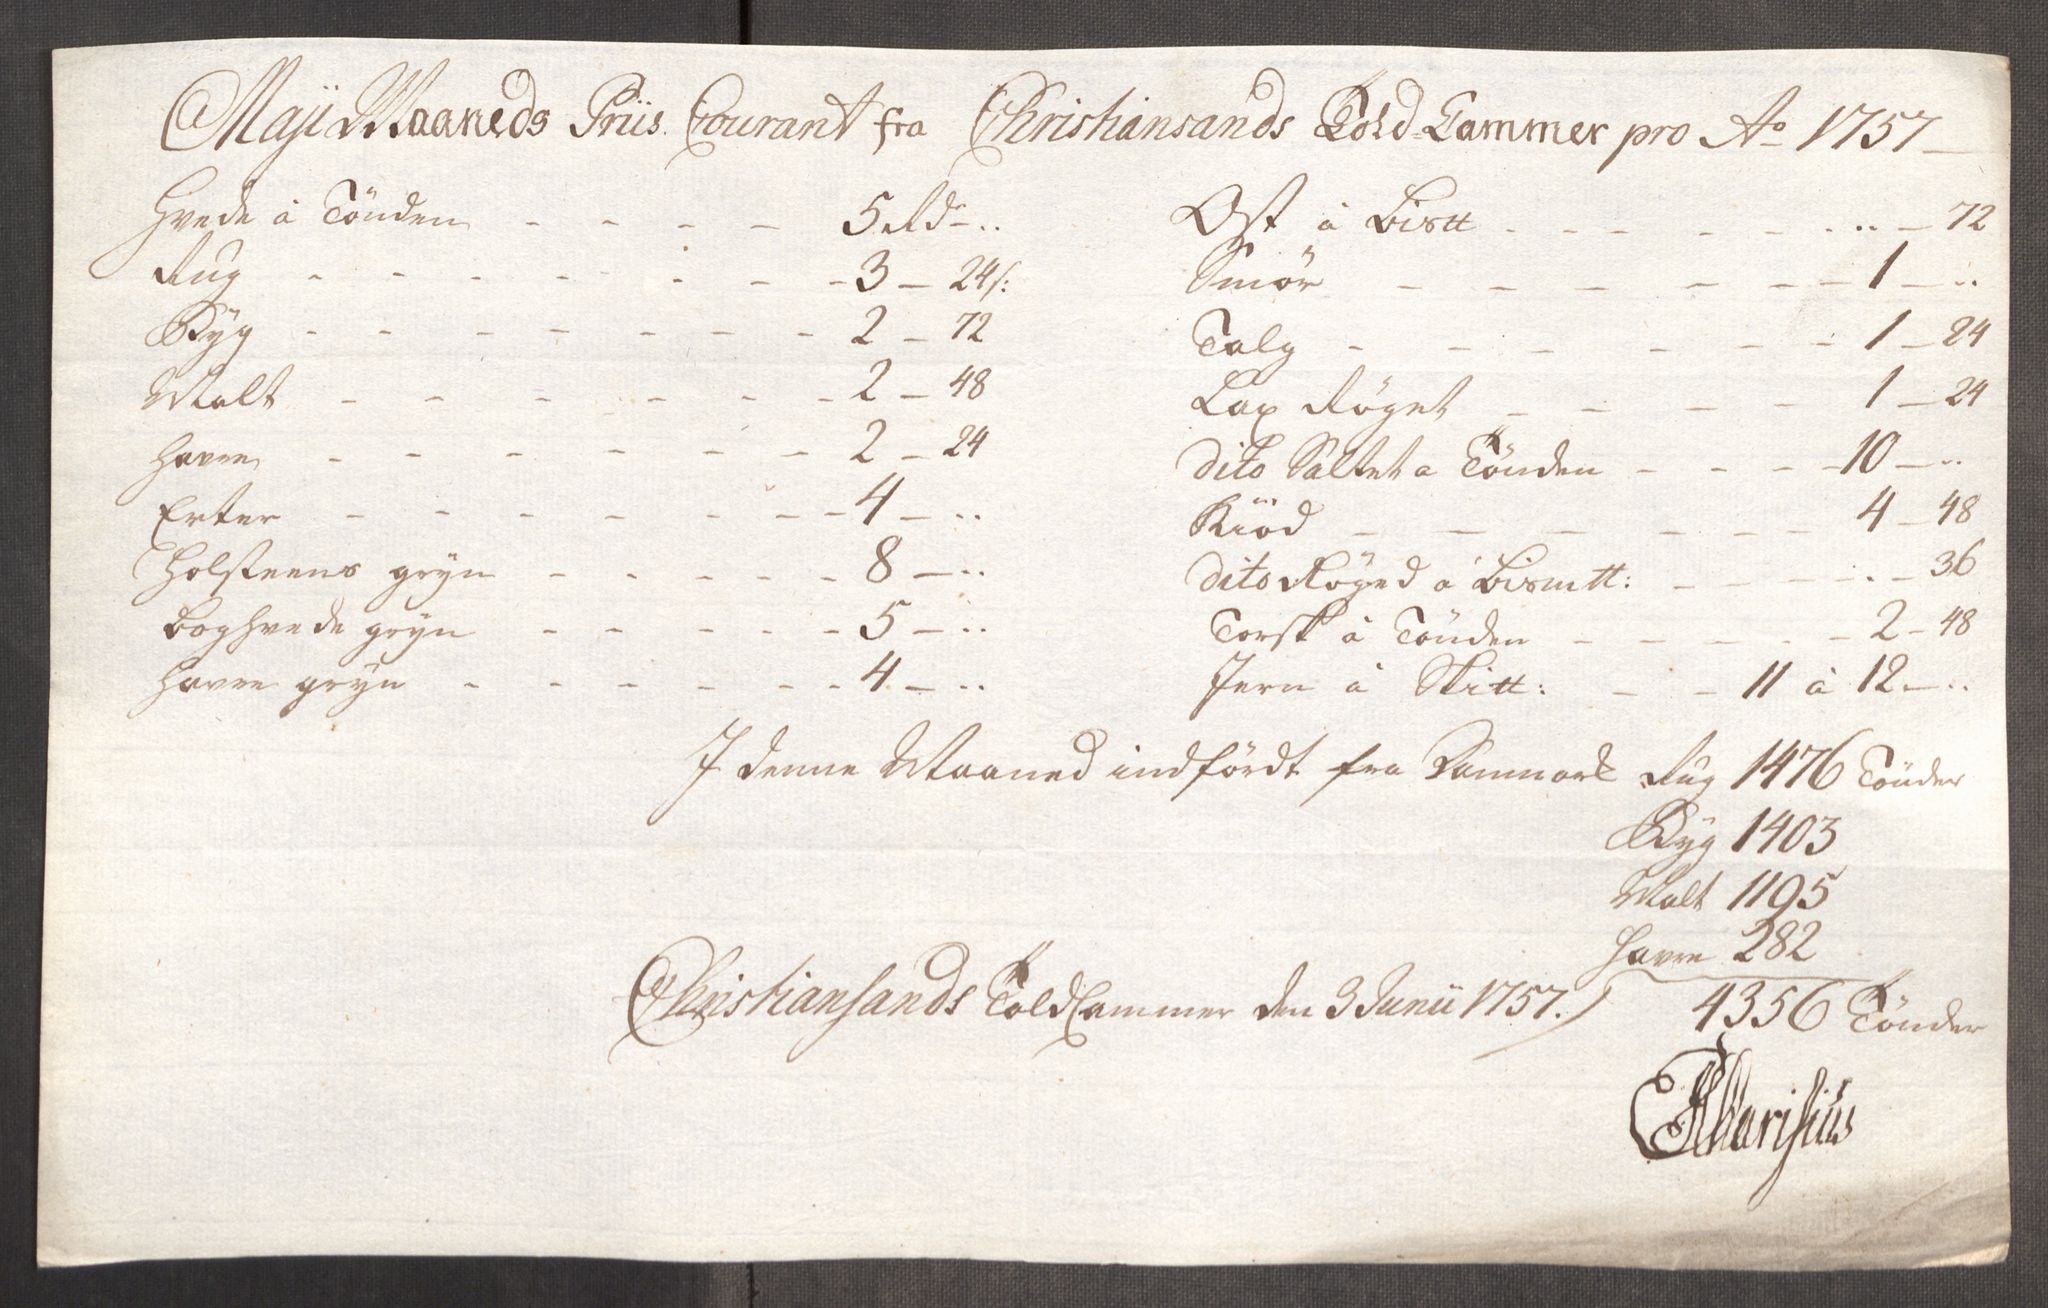 Maji Maaneds Priis Courant fra Christiansands Told-Cammer pro Ao 1757
Hvede á Tönden - - - - 5 Rd - ..
Rug - - - - - - - 3 - 24 s:
Byg - - - - - - - 2 - 72
Malt - - - - - - 2 - 48
Havre - - - - - - 2 - 24
Erter - - - - - - 4 - ..
Holsteens gryn - - - - - 8 - ..
Boghvede gryn - - - - - 5 - ..
Havre gryn - - - - - - 4 - ..
Ost á Bistt - - - - - .. - 72
Smör - - - - - - 1 - ..
Talg - - - - - - 1 - 24
Lax Röget - - - - - 1 - 24
dito Saltet a Tönden - - - 10 - ..
Kiöd - - - - - - 4 - 48
dito Röged á Bismtt: - - - .. - 36
Torsk á Tönden - - - - - 2 - 48
Jern á Skitt: - - 11 á 12 - ..
I denne Maaned indfördt fra Danmark Rug 1476 Tönder
Byg 1403
Malt 1195
Havre 282
4356 Tönder
Christiansands Told Cammer den 3 Junii 1757.